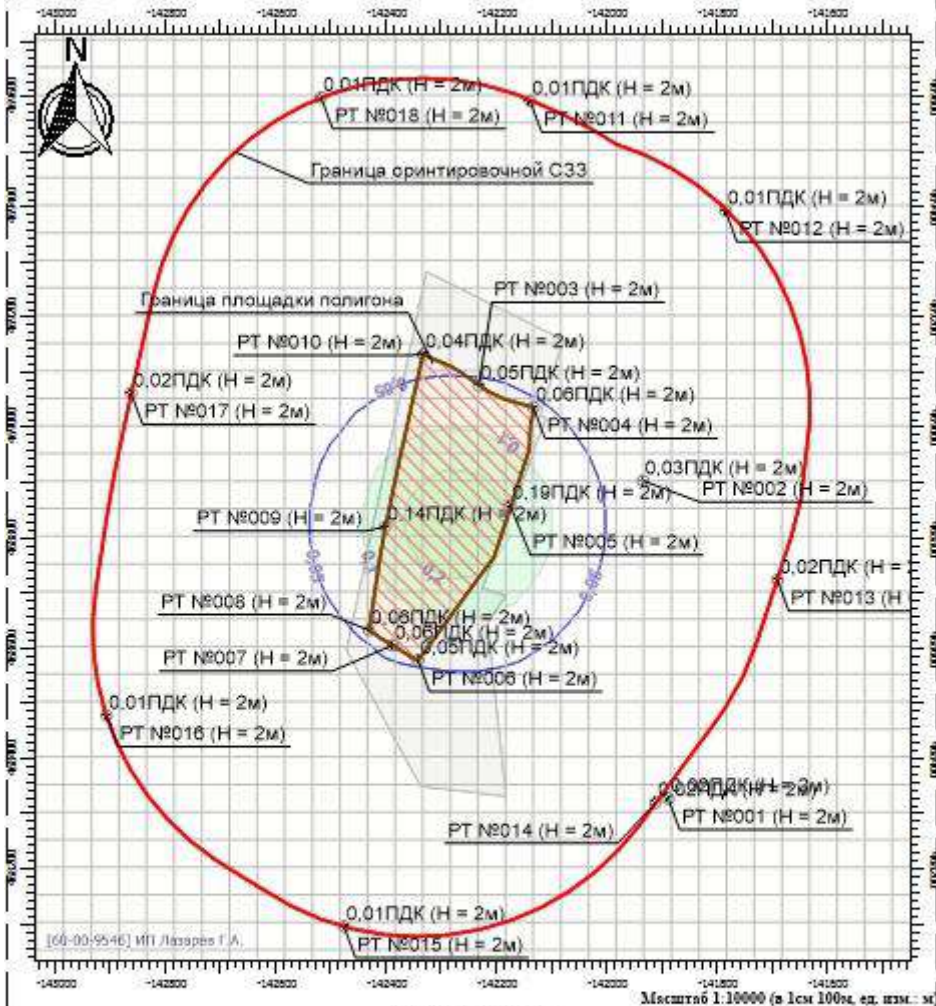 -143000 -142800 -142600 -142400 -142200 -142000 -141800 -141600
N
0,01ПДК (H = 2м)
РТ №018 (H = 2м)
0,01ПДК (H = 2м)
РТ №011 (H = 2м)
Граница оринтировочной СЗЗ
0,01ПДК (H = 2м)
РТ №012 (H = 2м)
РТ №003 (H = 2м)
Граница площадки полигона
РТ №010 (H = 2м)
0,04ПДК (H = 2м)
0,05ПДК (H = 2м)
0,05
0,02ПДК (H = 2м)
РТ №017 (H = 2м)
0,06ПДК (H = 2м)
РТ №004 (H = 2м)
0,1
0,03ПДК (H = 2м)
РТ №002 (H = 2м)
0,19ПДК (H = 2м)
РТ №009 (H = 2м)
0,14ПДК (H = 2м)
РТ №005 (H = 2м)
0,05
0,1
0,2
0,05
0,02ПДК (H =
РТ №013 (H
РТ №008 (H = 2м)
0,06ПДК (H = 2м)
0,06ПДК (H = 2м)
РТ №007 (H = 2м)
0,05ПДК (H = 2м)
РТ №006 (H = 2м)
0,01ПДК (H = 2м)
РТ №016 (H = 2м)
РТ №001 (H = 2м)
РТ №014 (H = 2м)
0,01ПДК (H = 2м)
РТ №015 (H = 2м)
[60-00-9546] ИП Лазарев Г.А.
-143000 -142800 -142600 -142400 -142200 -142000 -141800 -141600
Масштаб 1:10000 (в 1см 100м, ед. изм.: м